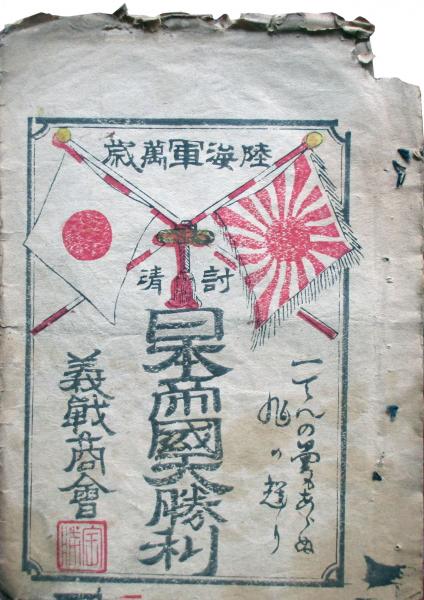 陸海軍萬歳
討清
日本帝國大勝利
一てんの雲もあらぬ
旭の趣り
義戦商會